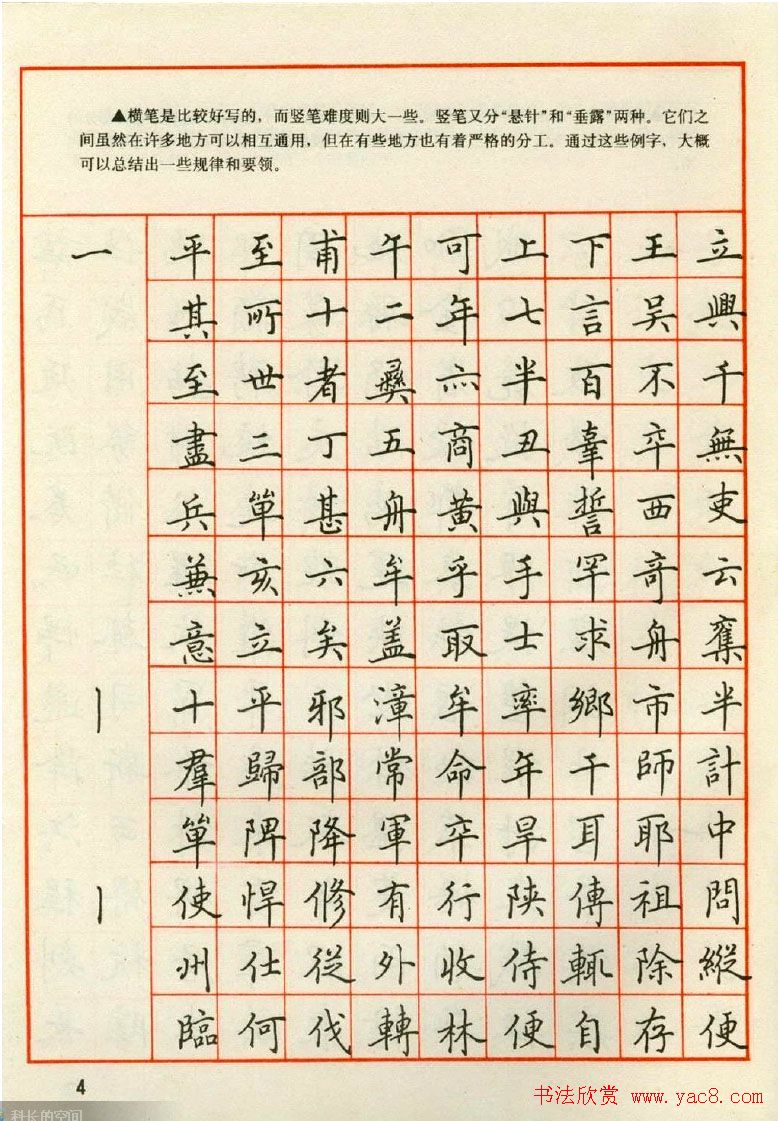 ▲横笔是比较好写的，而竖笔难度则大一些。竖笔又分“悬针”和“垂露”两种。它们之
间虽然在许多地方可以相互通用，但在有些地方也有着严格的分工。通过这些例字，大概
可以总结出一些规律和要领。
一 平 至 甫 午 可 上 下 王 立
其 所 十 二 年 七 言 吴 興
至 世 者 彝 亦 半 百 不 千
盡 三 丁 五 商 丑 辜 卒 無
兵 單 甚 舟 黄 與 誓 西 吏
兼 亥 六 牟 乎 手 罕 奇 云
意 立 矣 盖 取 士 求 舟 奪
丨 十 平 邪 漳 牟 率 鄉 市 半
羣 歸 部 常 命 年 干 師 計
單 陴 降 軍 卒 旱 耳 耶 中
丨 使 悍 修 有 行 陝 傳 祖 問
州 仕 從 外 收 侍 輒 除 縱
臨 何 伐 轉 林 便 自 存 便
4
书法欣赏 www.yac8.com
科长的空间